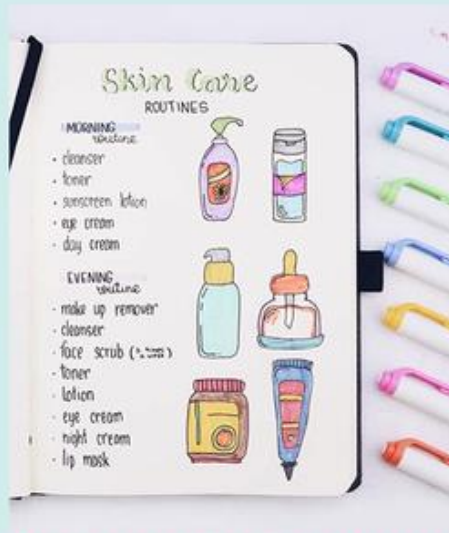 Skin Care
ROUTINES
MORNING
routine
• cleanser
• toner
• sunscreen lotion
• eye cream
• day cream
EVENING
routine
• make up remover
• cleanser
• face scrub
• toner
• lotion
• eye cream
• night cream
• lip mask